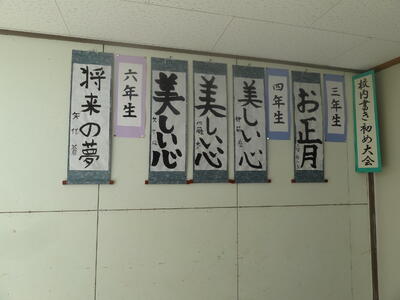 校内書き初め大会
三年生
お正月
四年生
美しい心
美しい心
美しい心
六年生
将来の夢